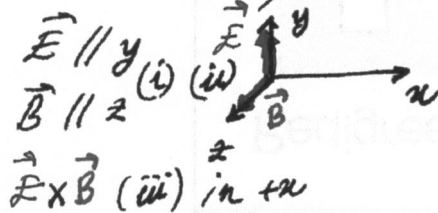 E⃗ // y (i) (ii)
B⃗ // z
E⃗ × B⃗ (iii) in +x
E⃗
y
x
B⃗
z